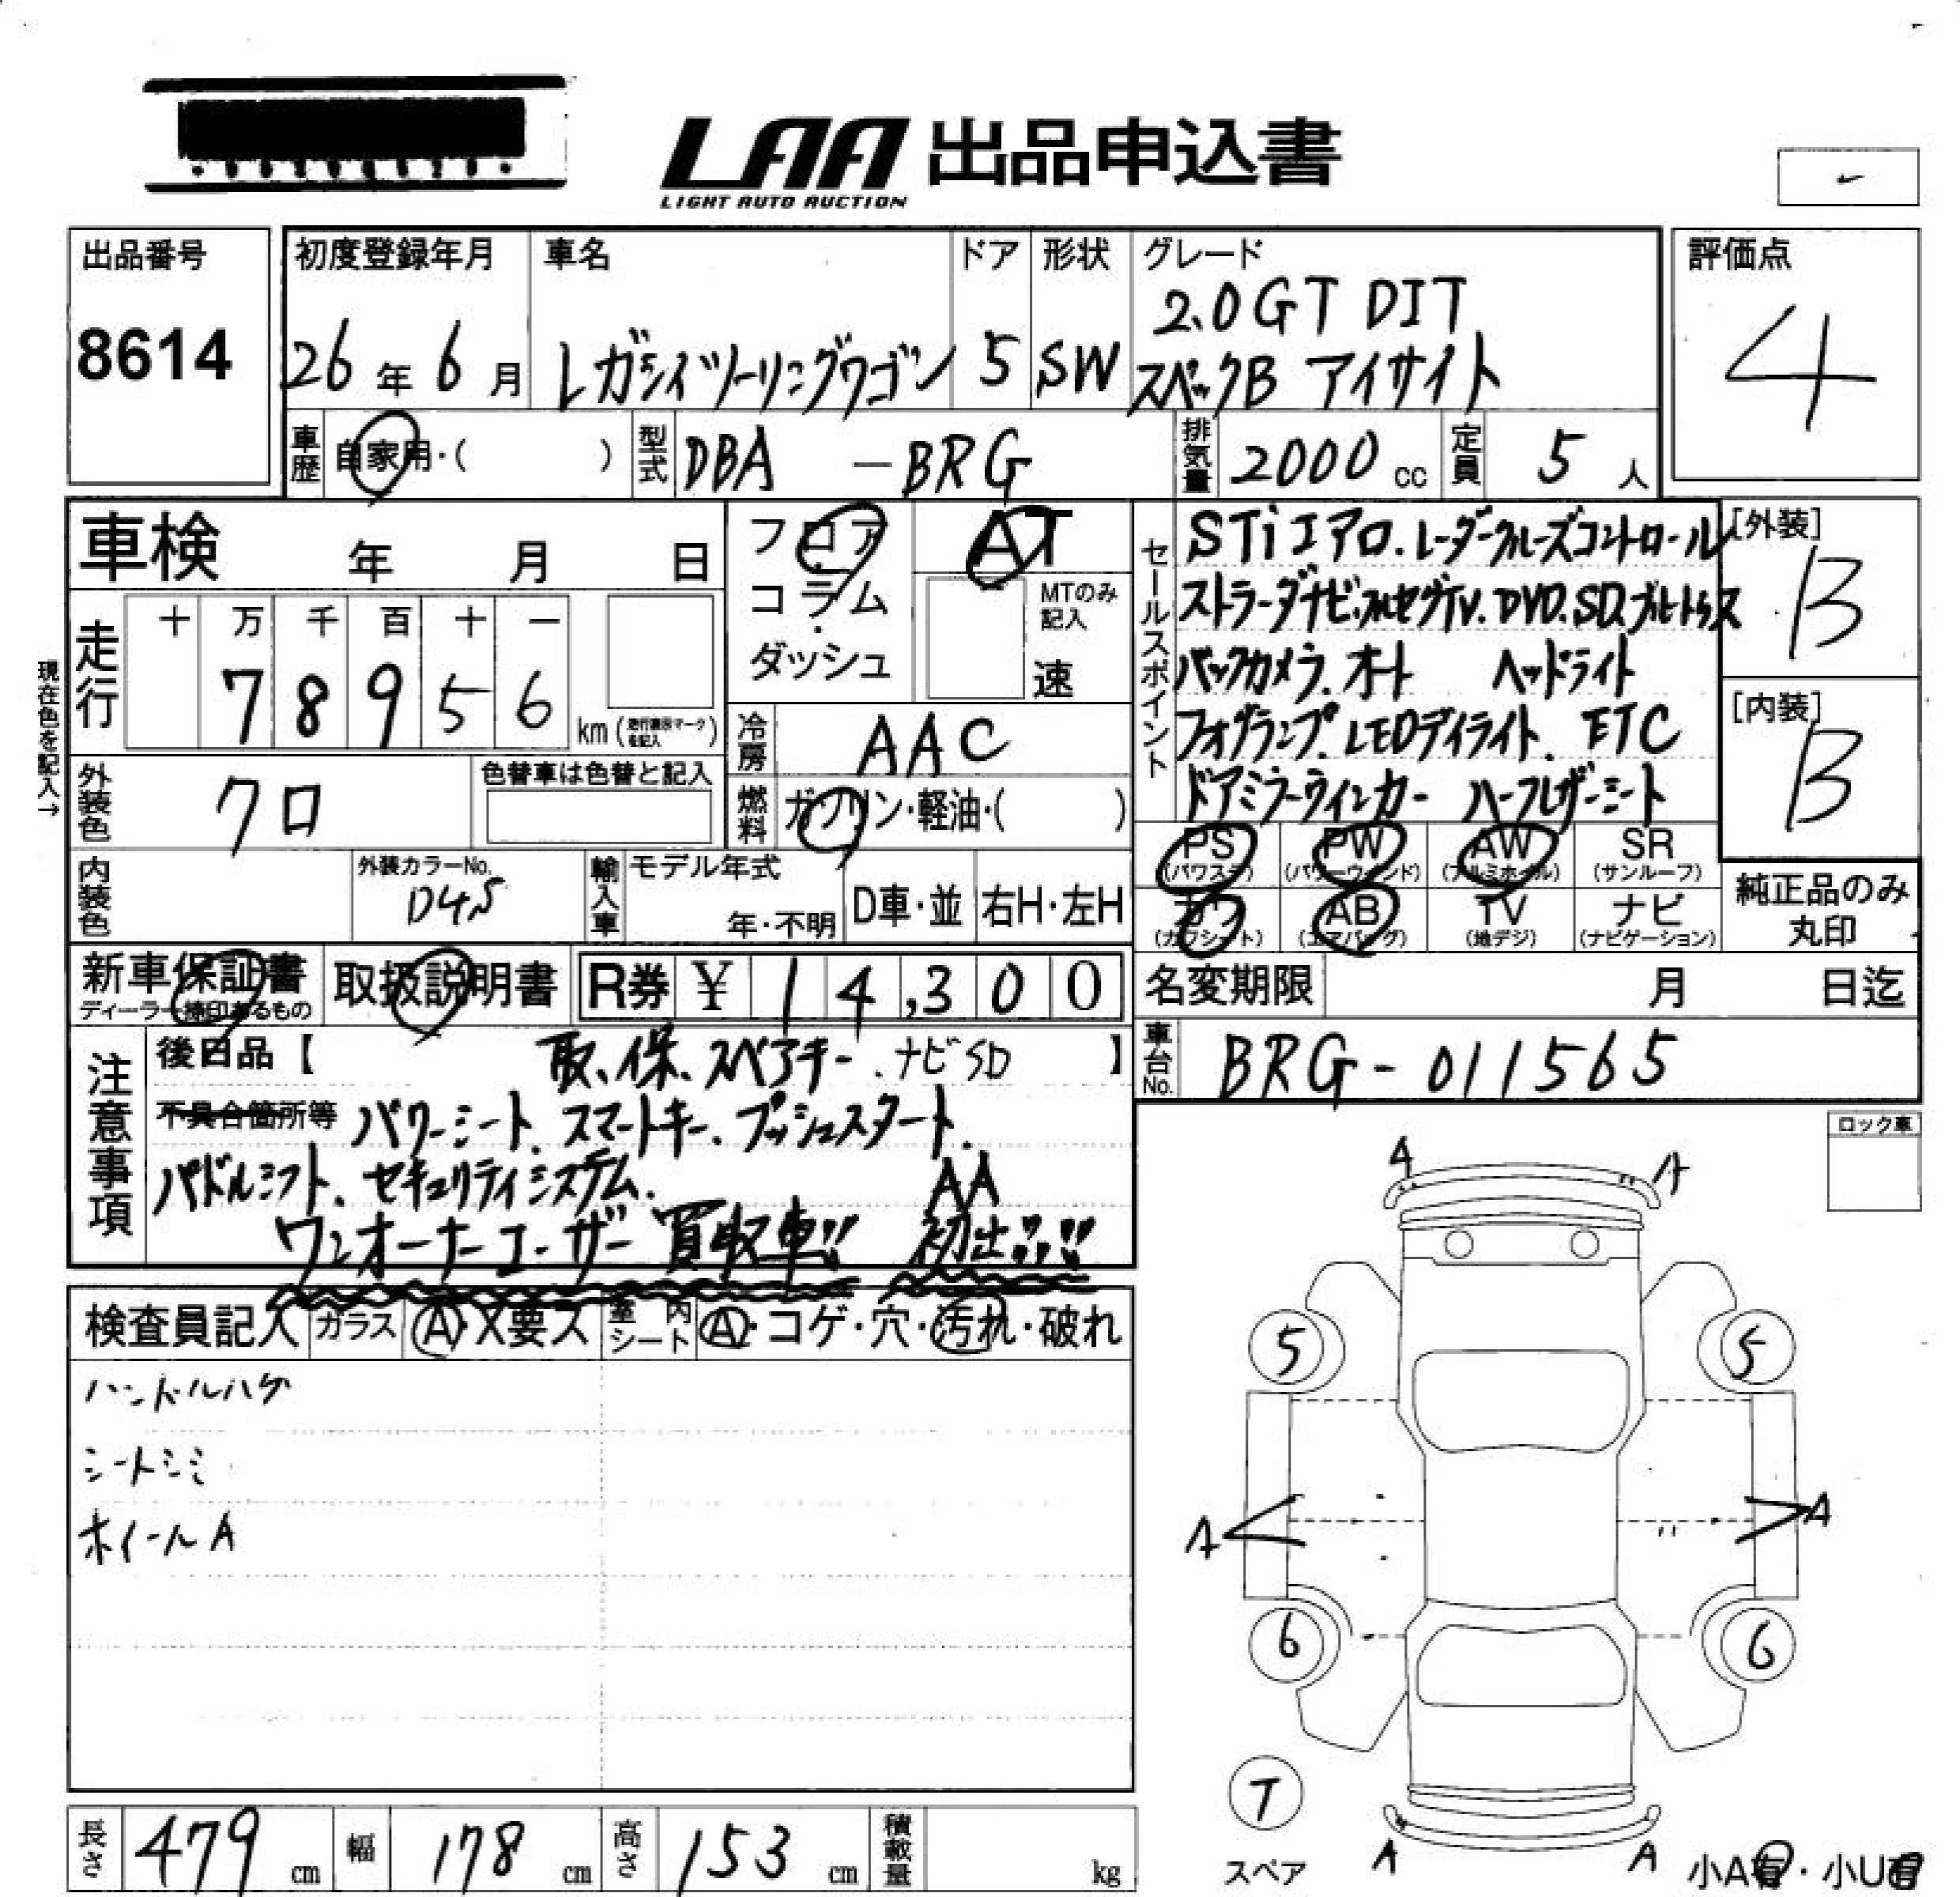 LAA 出品申込書
LIGHT AUTO AUCTION
出品番号
8614
初度登録年月
26年6月
車名
レガシィツーリングワゴン
ドア
5
形状
SW
グレード
2.0GT DIT
スペックB アイサイト
評価点
4
車歴 自家用・( )
型式 DBA - BRG
排気量 2000 cc
定員 5 人
車検 年 月 日
フロア・コラム・ダッシュ
AT
MTのみ記入
速
セールスポイント
STiエアロ.レーダークルーズコントロール
ストラーダナビ.フルセグTV.DVD.SD.ブルートゥース
バックカメラ.オート ヘッドライト
フォグランプ.LEDデイライト.ETC
ドアミラーウィンカー ハーフレザーシート
[外装]
B
[内装]
B
現在色を記入→
走行
十 万 千 百 十 一
7 8 9 5 6
km(走行表示マークを記入)
冷房 AAC
外装色 クロ
色替車は色替と記入
燃料 ガソリン・軽油・( )
PS (パワステ)
PW (パワーウインド)
AW (アルミホイル)
SR (サンルーフ)
カワ (カワシート)
AB (エアバッグ)
TV (地デジ)
ナビ (ナビゲーション)
純正品のみ丸印
内装色
外装カラーNo.
D4S
輸入車
モデル年式
年・不明
D車・並
右H・左H
新車保証書
ディーラー捺印あるもの
取扱説明書
R券 ¥ 14,300
名変期限 月 日迄
車台No. BRG-011565
注意事項
後日品【 取、保、スペアキー.ナビSD 】
不具合箇所等 パワーシート.スマートキー.プッシュスタート.
パドルシフト.セキュリティシステム.
ワンオーナーユーザー買取車!! AA初出!!!!
ロック車
検査員記入
ガラス A・X要ス
室内シート A・コゲ・穴・汚れ・破れ
ハンドルハゲ
シートシミ
ホイールA
A A
5 5
A A
6 6
T
スペア
A A
小A有・小U有
長さ 479 cm
幅 178 cm
高さ 153 cm
積載量 kg